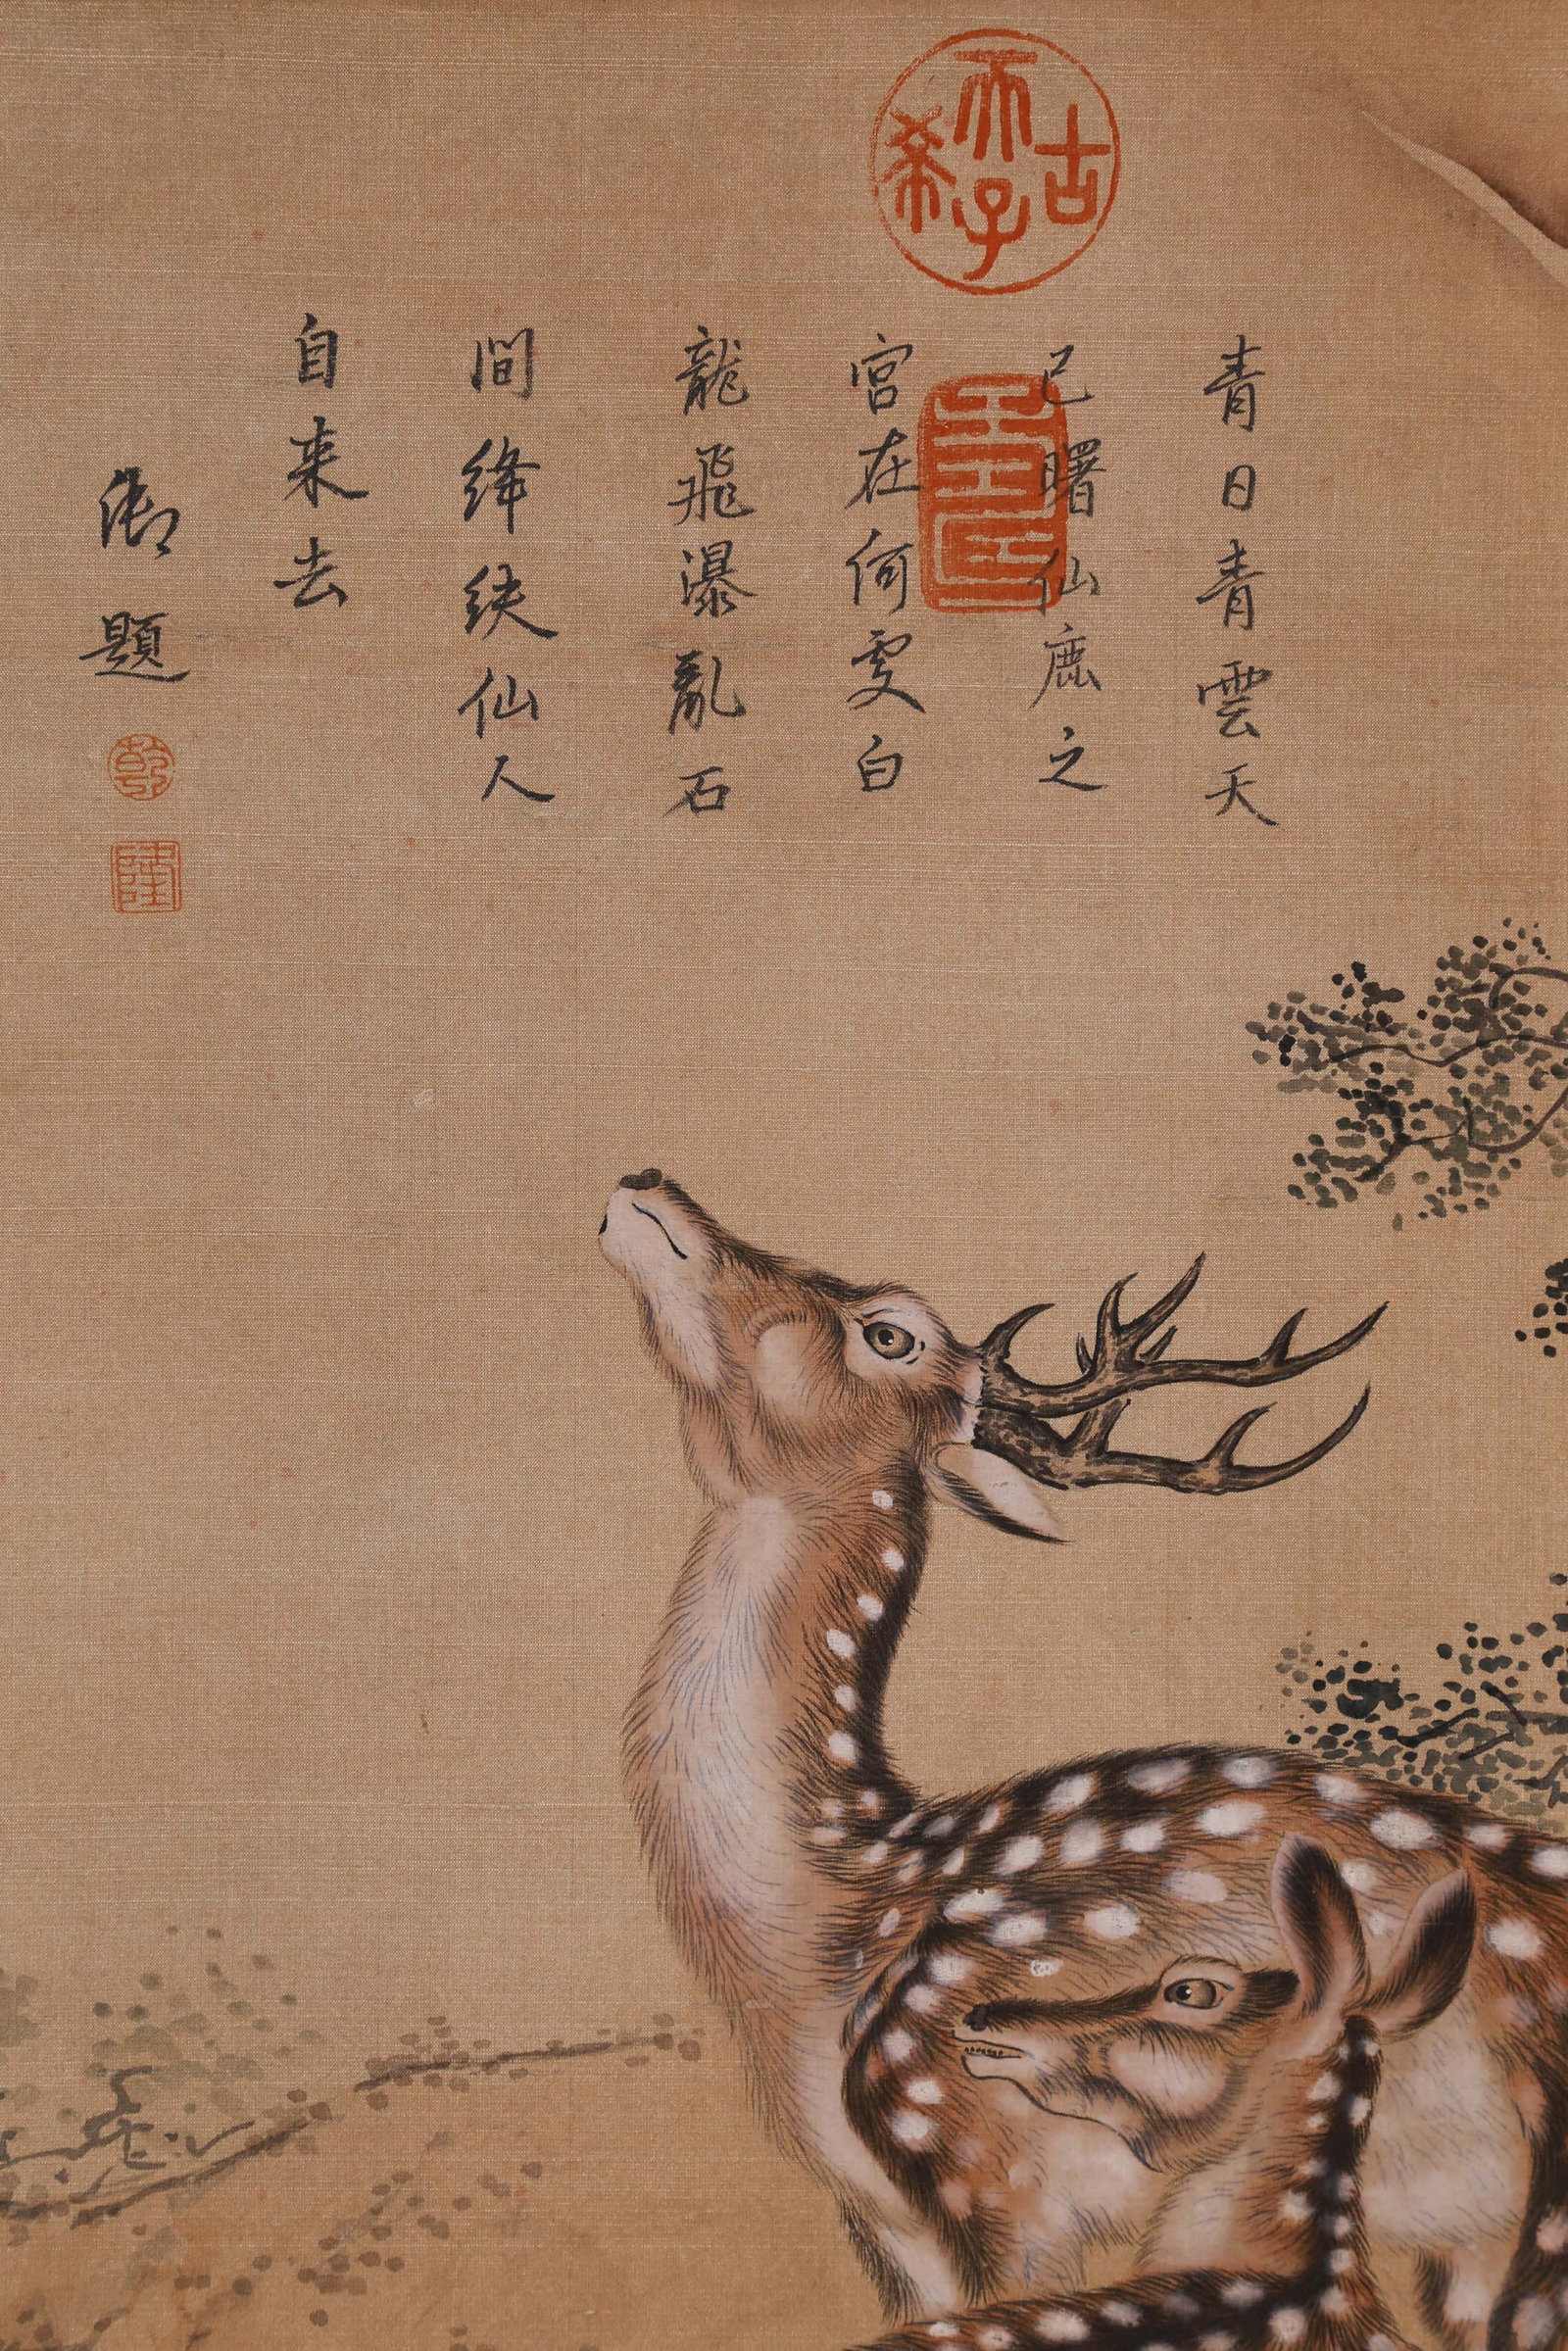 古希天子
壽
青日青雲天
已曙仙鹿之
宮在何處白
龍飛瀑亂石
間絳紩仙人
自来去
御題
乾
隆